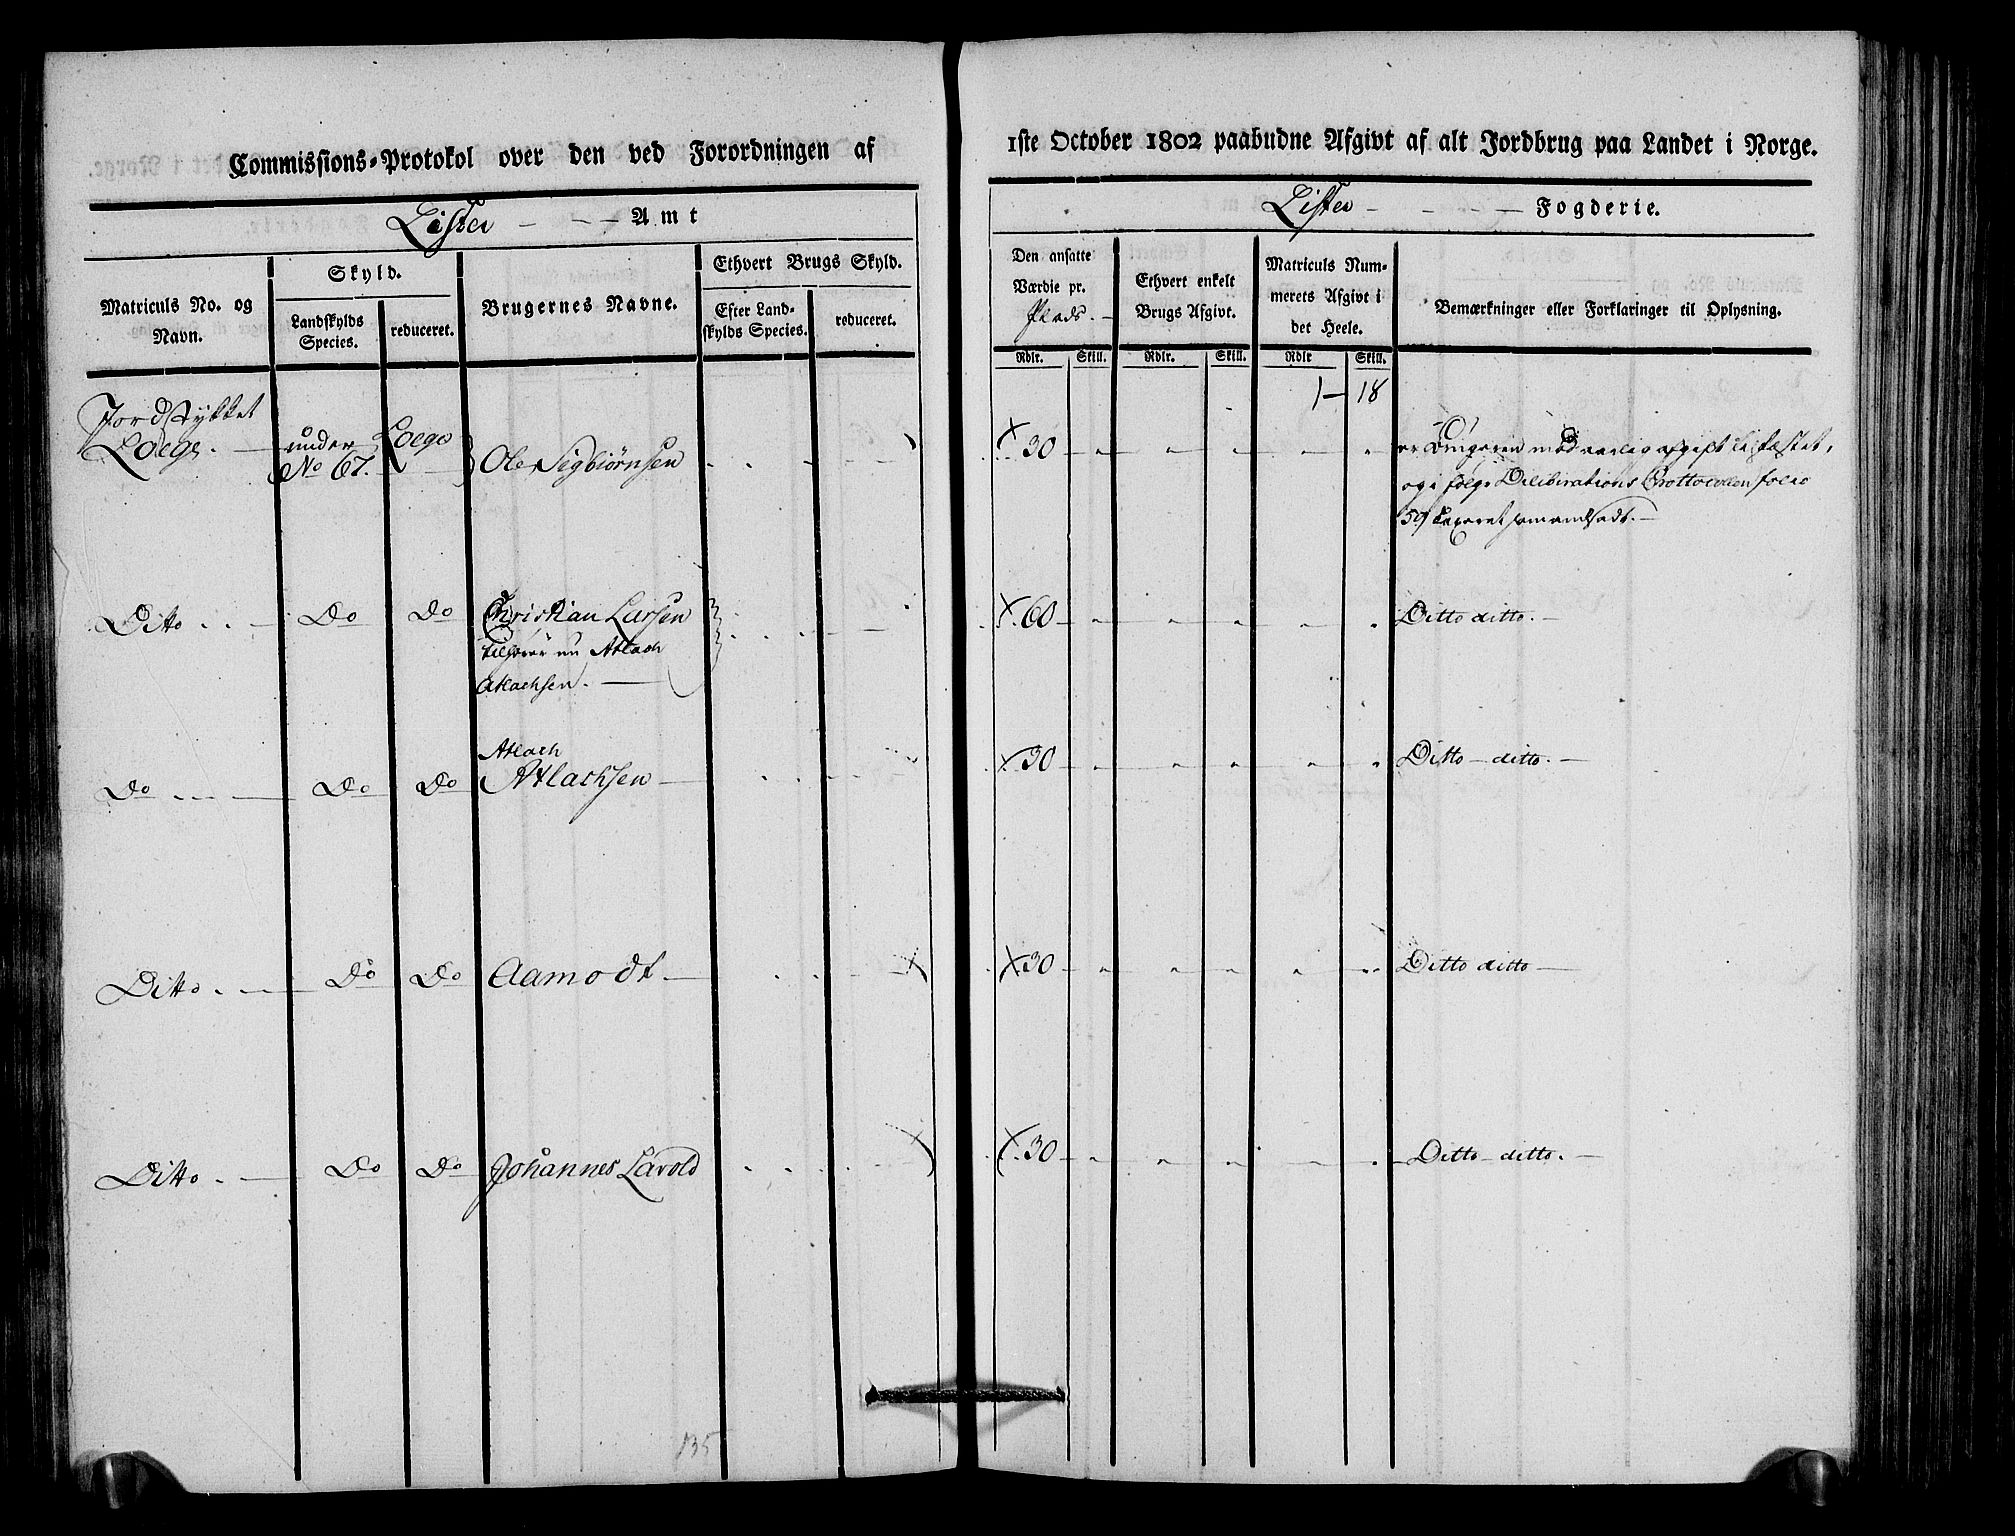 Commissions-Protokol over den ved Forordningen af
Lister Amt
Matriculs No. og Navn.
Skyld.
Landskylds Species.
reduceret.
Brugernes Navne.
Ethvert Brugs Skyld.
Efter Landskylds Species.
reduceret.
Jordstykket
Loege. under Loege
No 67. Ole Sigbiørnsen
Ditto Do Do Christian Larsen
tilhører nu Atlach
Atlachsen.
Atlach
Do Do Do Atlachsen
Ditto Do Do Aamodt
Ditto Do Do Johannes Lavold
135
1ste October 1802 paabudne Afgivt af alt Jordbrug paa Landet i Norge.
Lister Fogderie.
Den ansatte Værdie pr. Plads.
Ethvert enkelt Brugs Afgivt.
Matriculs Nummerets Afgivt i det Heele.
Bemærkninger eller Forklaringer til Oplysning.
Rdlr. Skill. Rdlr. Skill. Rdlr Skill.
1 - 18
30 er Brugeren med aarlig afgift befæstet,
og i følge Deliberations Prottocollen folio
59
60 Ditto ditto.
30 Ditto ditto.
30 Ditto ditto
30 Ditto ditto.